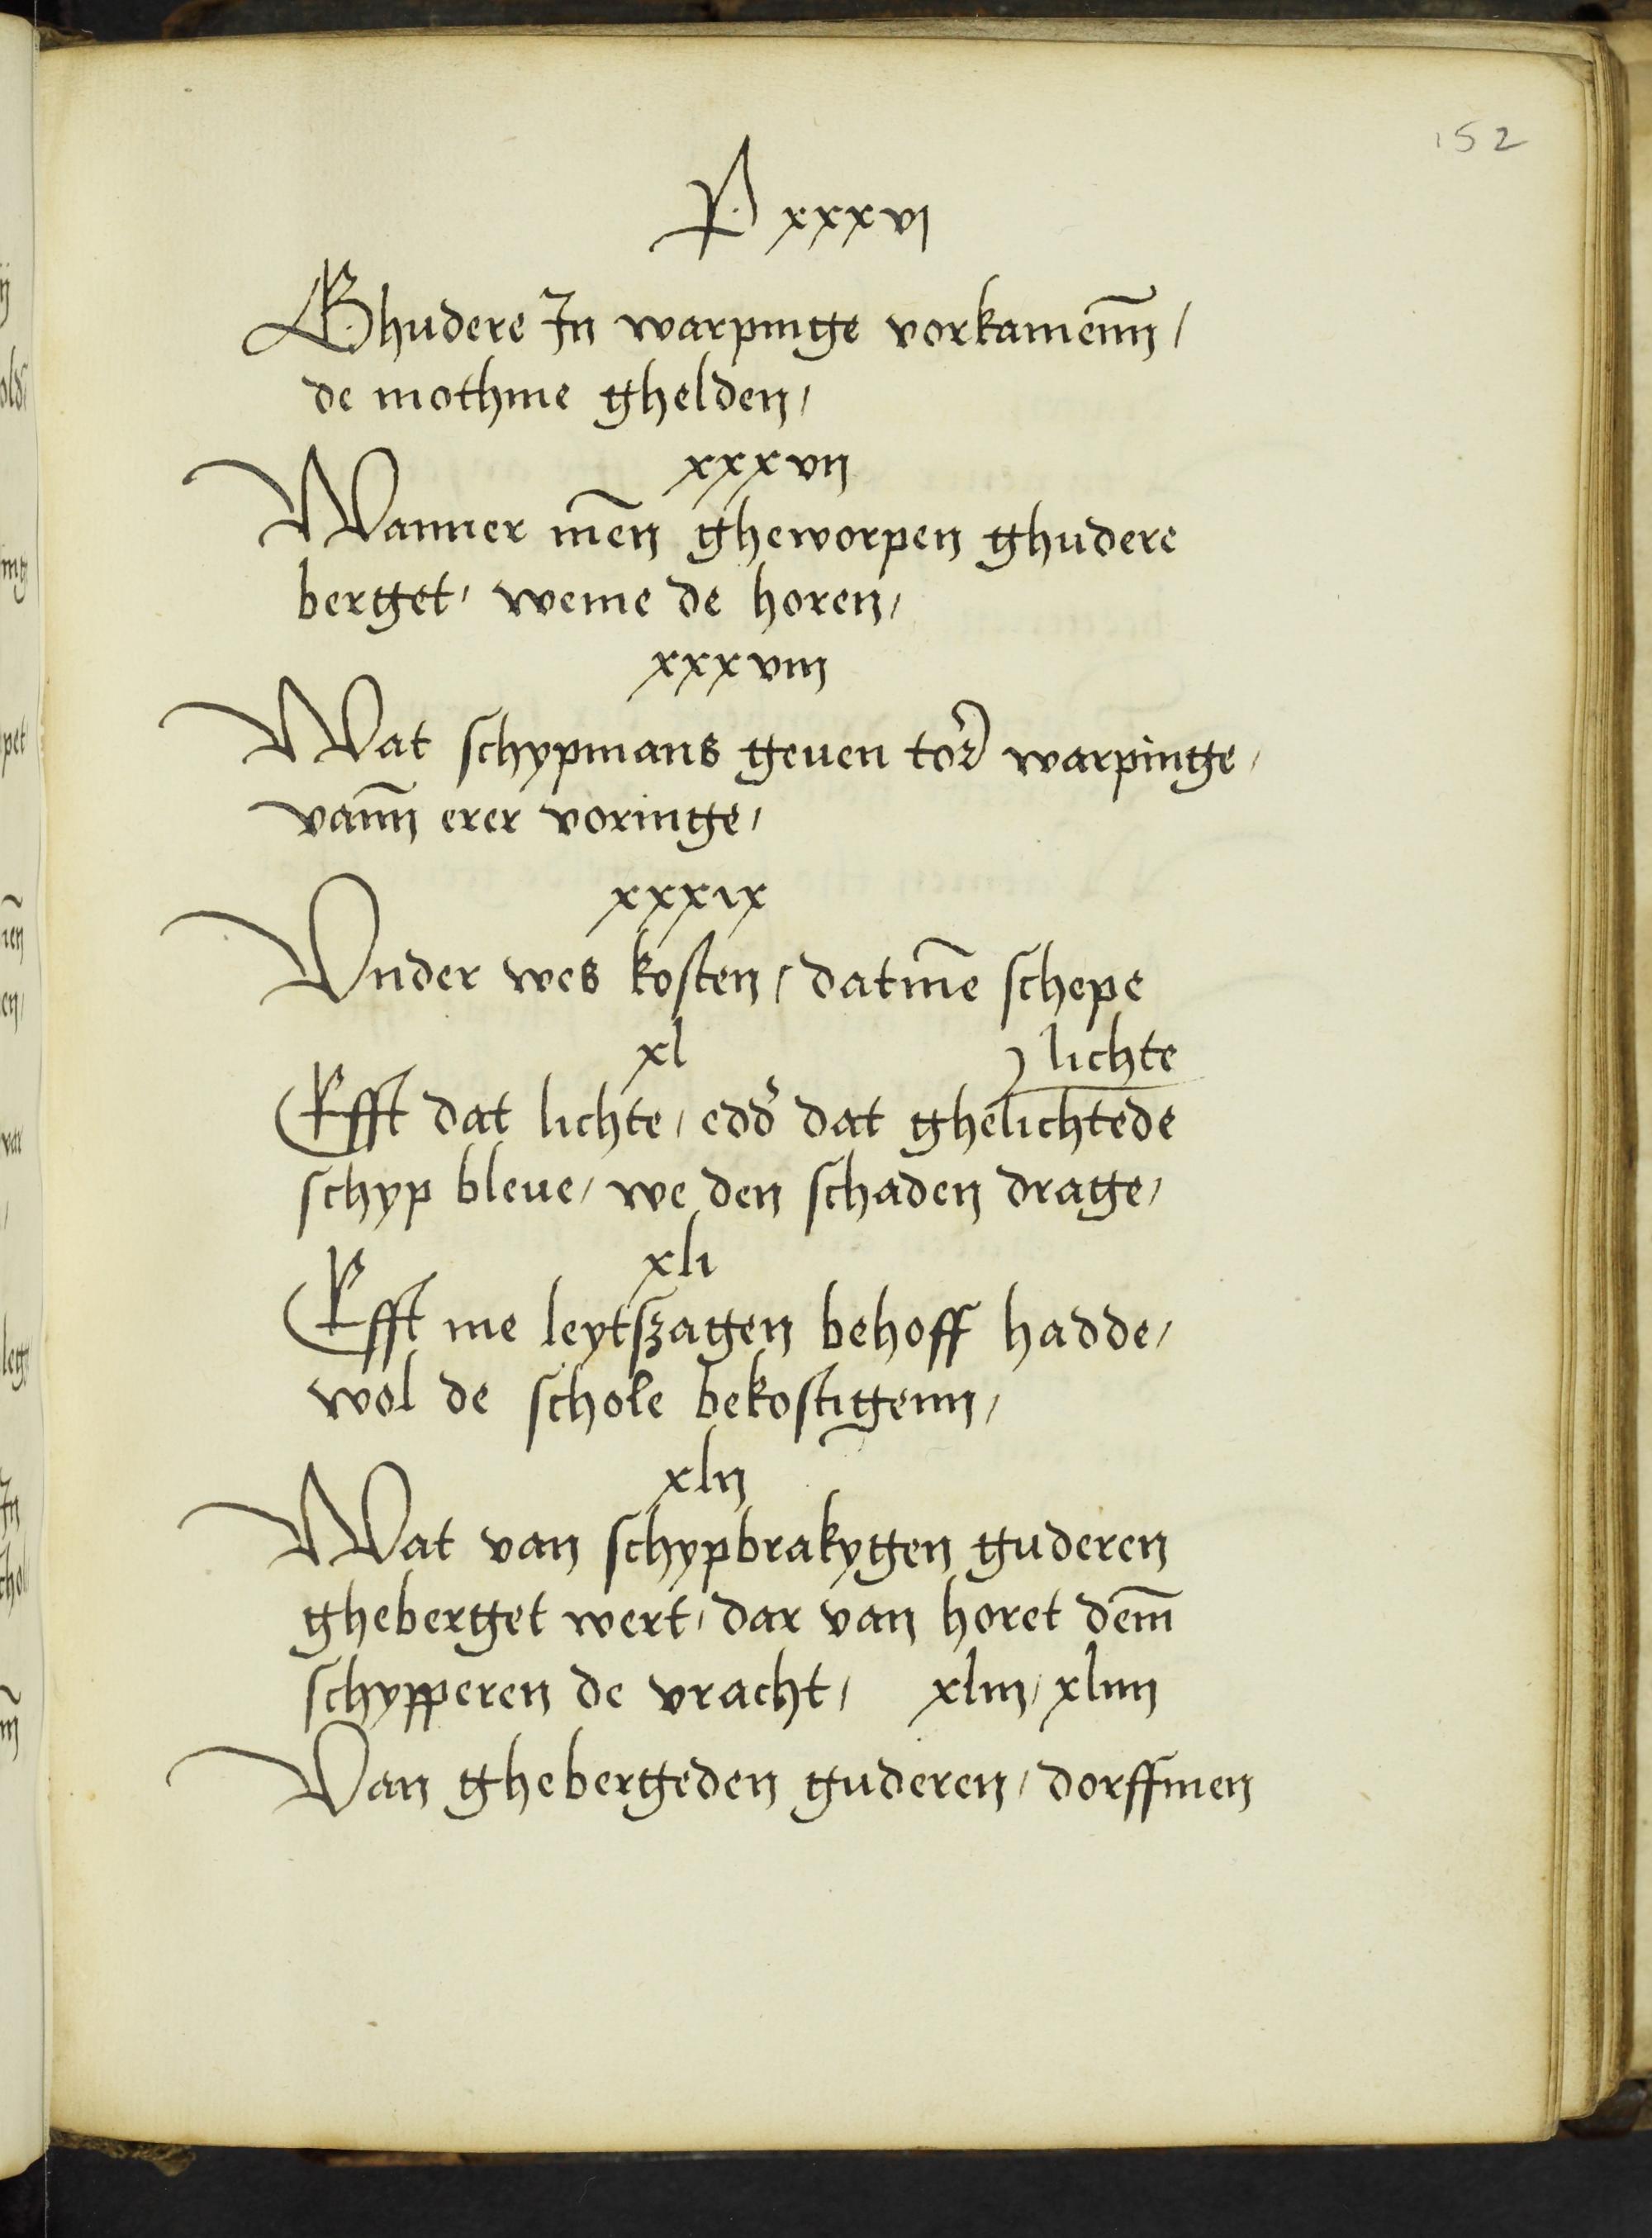 152
P xxxvi
Ghudere In warpinge vorkamen̄n /
de mothme ghelden /
xxxvij
Wanner mēn gheworpen ghudere
berget / weme de horen /
xxxviij
Wat schypmans geuen tor̄ warpinge /
van̄n erer voringe /
xxxix
Vnder wes kosten / datmē schepe
xl lichte
Efft dat lichte / edd' dat ghelichtede
schyp bleue / we den schaden drage /
xli
Efft me leytszagen behoff hadde /
wol de schole bekostigenn /
xlij
Wat van schypbrakygen guderen
gheberget wert / dar van horet dem̄
schypperen de vracht / xliij / xliiij
Van ghebergeden guderen / dorffmen